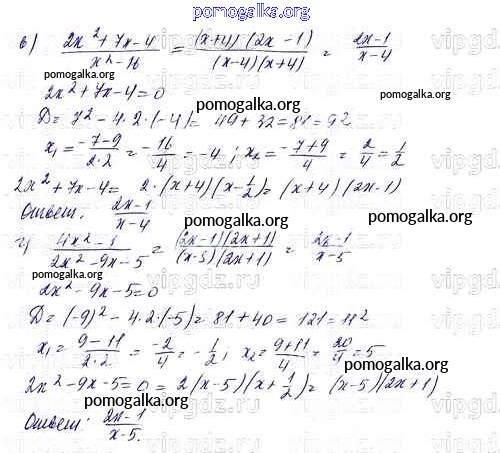 pomogalka.org
в) (2x²+7x-4)/(x²-16) = ((x+4)(2x-1))/((x-4)(x+4)) = (2x-1)/(x-4)
pomogalka.org pomogalka.org
2x²+7x-4=0
D= 7²-4·2·(-4)= 49+32=81=9²
pomogalka.org
x₁= (-7-9)/(2·2) = -16/4 = -4; x₂= (-7+9)/4 = 2/4 = 1/2
2x²+7x-4= 2·(x+4)(x-1/2)= (x+4)(2x-1)
Ответ: (2x-1)/(x-4)
pomogalka.org pomogalka.org
г) (4x²-1)/(2x²-9x-5) = ((2x-1)(2x+1))/((x-5)(2x+1)) = (2x-1)/(x-5)
2x²-9x-5=0
pomogalka.org
D= (-9)²-4·2·(-5)=81+40=121=11²
x₁= (9-11)/(2·2) = -2/4 = -1/2; x₂= (9+11)/4 = 20/4 = 5
pomogalka.org
2x²-9x-5=0= 2(x-5)(x+1/2)= (x-5)(2x+1)
pomogalka.org
Ответ: (2x-1)/(x-5).
pomogalka.org